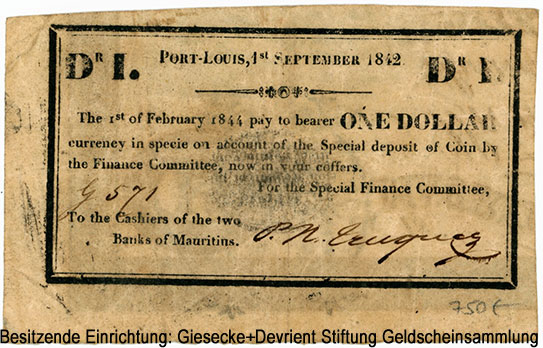 Dʳ 1. PORT-LOUIS, 1ˢᵗ SEPTEMBER 1842 Dʳ 1.
The 1ˢᵗ of February 1844 pay to bearer ONE DOLLAR
currency in specie on account of the Special deposit of Coin by
the Finance Committee, now in your coffers.
G 571 For the Special Finance Committee,
To the Cashiers of the two
Banks of Mauritius.
750 €
Besitzende Einrichtung: Giesecke+Devrient Stiftung Geldscheinsammlung